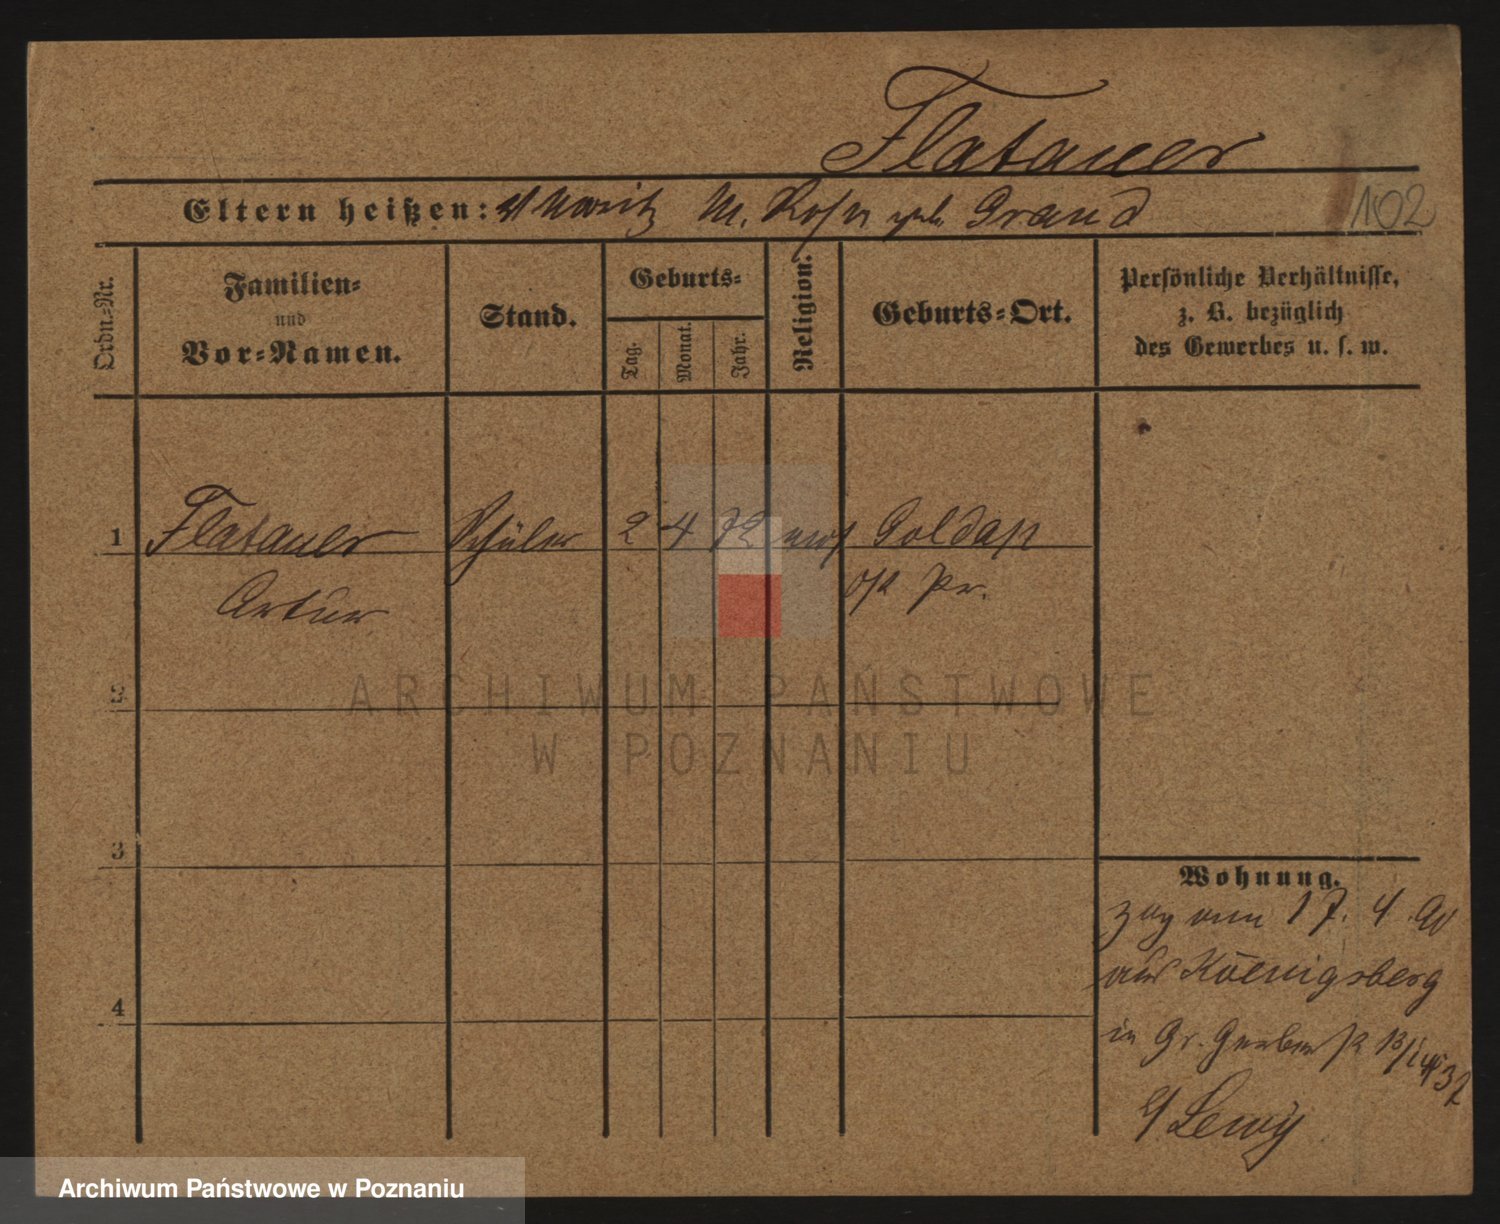 Flatauer
Eltern heißen: V Moritz M. Rosa geb. Grand
102
Ordn.-Nr.
Familien-
und
Vor-Namen.
Stand.
Geburts-
Tag.
Monat.
Jahr.
Religion.
Geburts-Ort.
Persönliche Verhältnisse,
z. B. bezüglich
des Gewerbes u. s. w.
1 Flatauer Schüler 2 4 72 mos Goldap
Artur Ost Pr.
2
3
4
Wohnung.
zog am 17. 4. 90
aus Koenigsberg
in Gr. Gerber St
b/ Lewy
ARCHIWUM PAŃSTWOWE
W POZNANIU
Archiwum Państwowe w Poznaniu